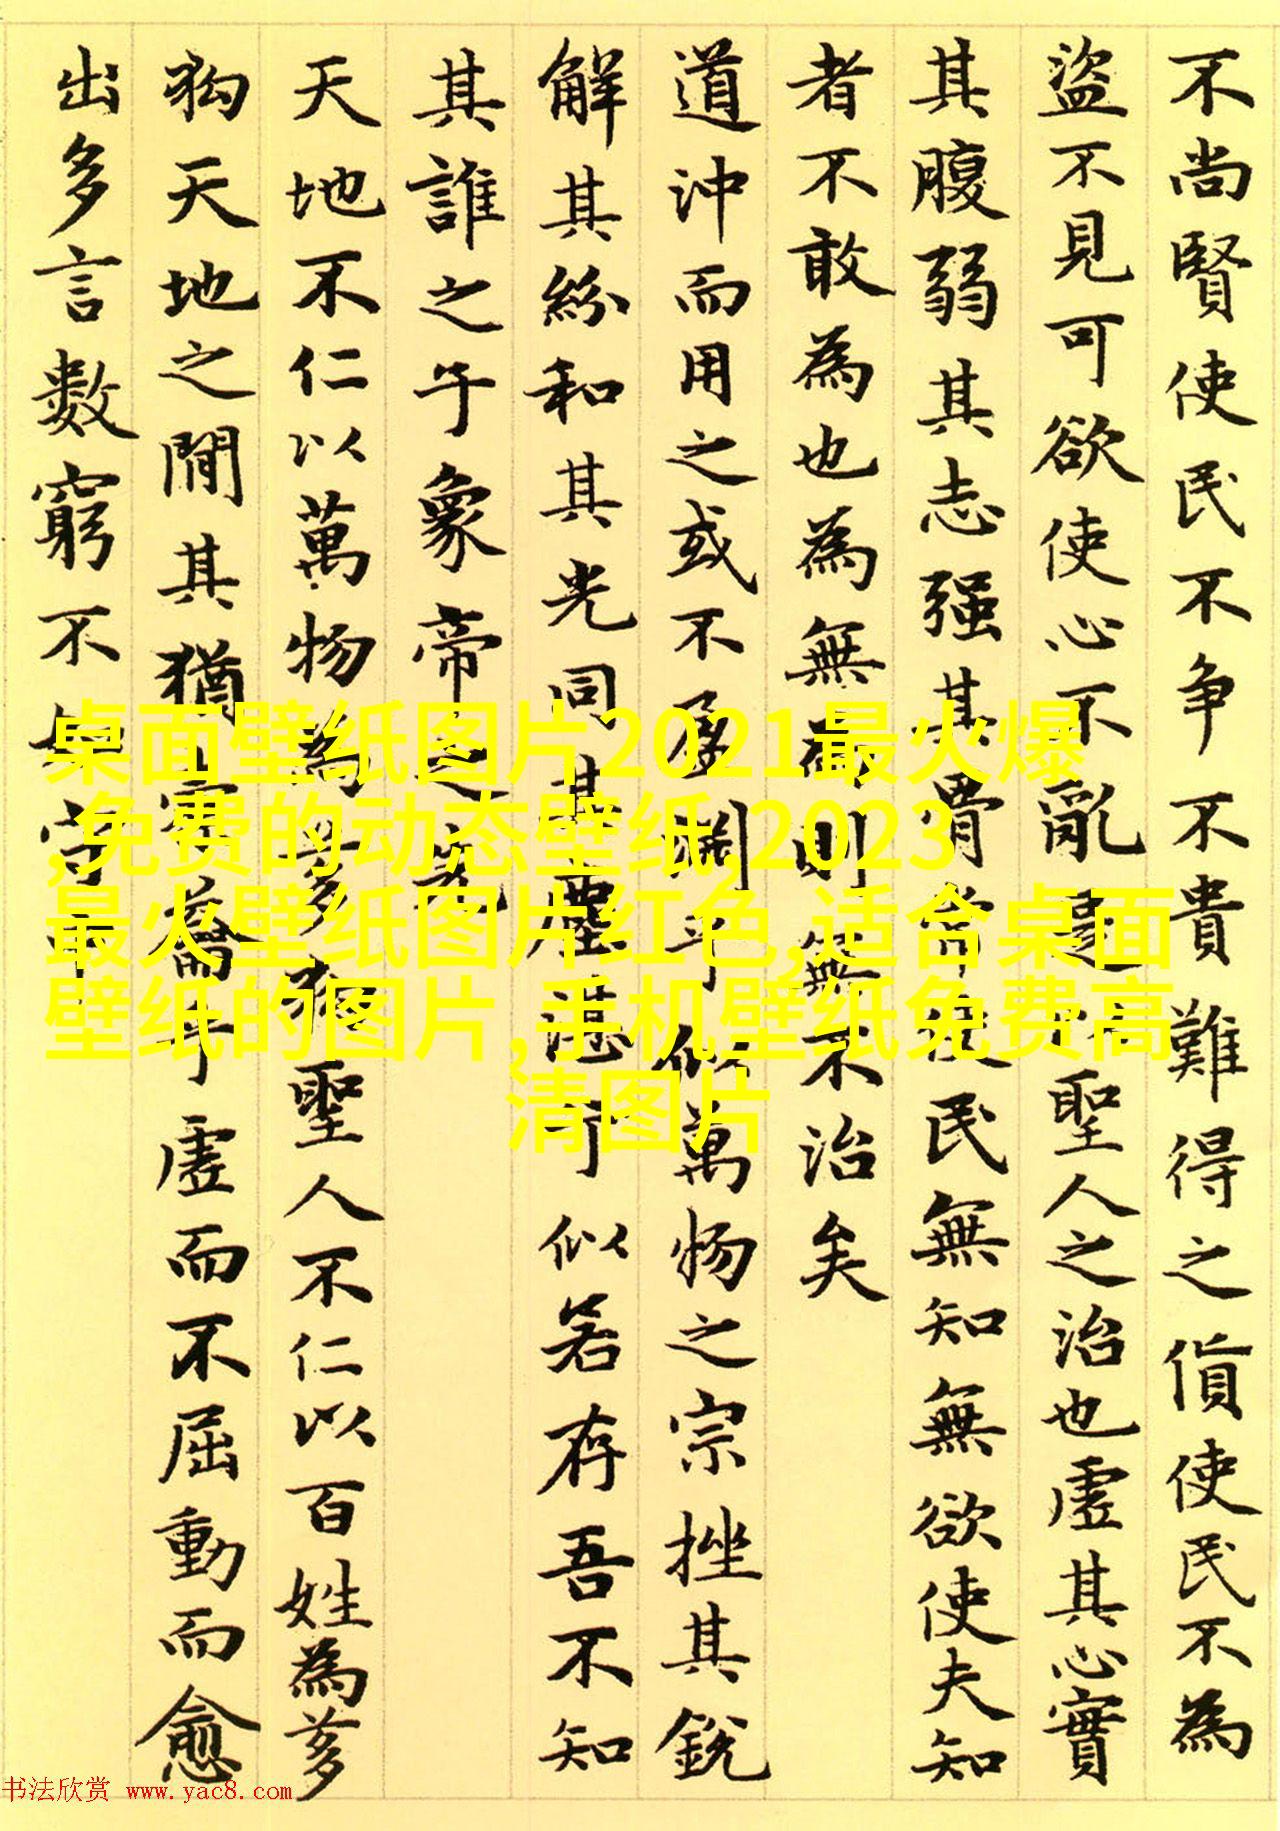 不尚賢使民不争不貴難得之貨使民不為
盜不見可欲使心不亂是以聖人之治也虛其心實
其腹弱其志强其骨常使民無知無欲使夫知
者不敢為也為無為則無不治矣
道沖而用之或不盈淵乎似萬物之宗挫其銳
解其紛和其光同其塵湛兮似若存吾不知
其誰之子象帝之先
天地不仁以萬物為芻狗聖人不仁以百姓為芻
狗天地之間其猶橐籥乎虛而不屈動而愈
出多言數窮不如守中
桌面壁纸图片2021最火爆
,免费的动态壁纸,2023
最火壁纸图片红色,适合桌面
壁纸的图片,手机壁纸免费高
清图片
书法欣赏 www.yac8.com